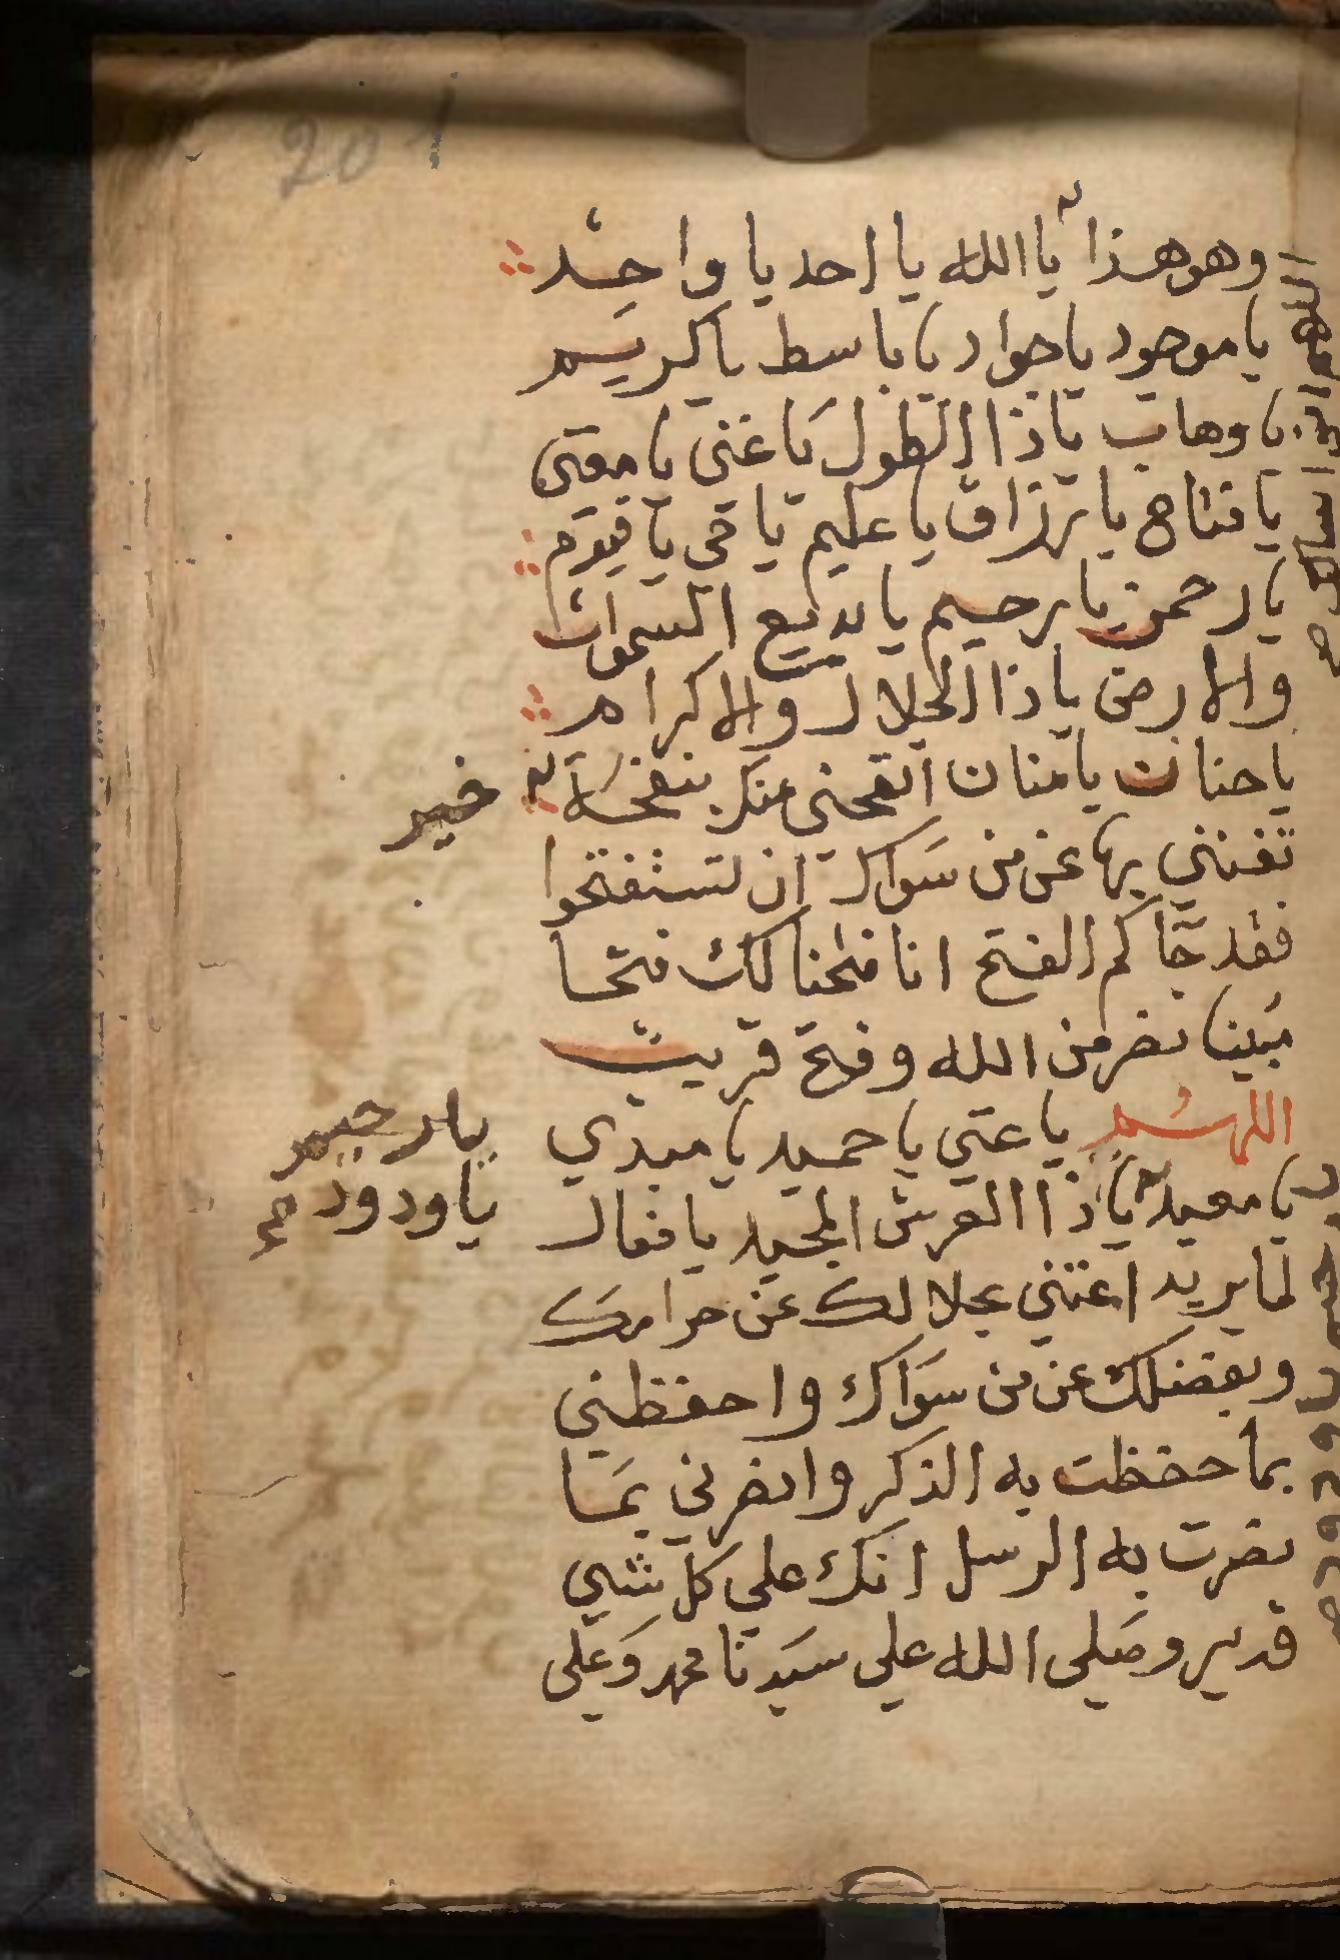 201
وهو هذا يا الله يا احد يا واحد
يا موجود يا جواد يا باسط يا كريم
يا وهاب يا ذا الطول يا غني يا مغني
يا فتاح يا رزاق يا عليم يا حي يا قيوم
يا رحمن يا رحيم يا بديع السموات
والارض يا ذا الجلال والاكرام
يا حنان يا منان انفحني منك بنفحة
خير
تغنني بها عن من سواك ان تستفتحوا
فقد جاكم الفتح انا فتحنا لك فتحا
مبينا نصر من الله وفتح قريب
اللهم يا غني يا حميد يا مبدي
يا معيد يا ذا العرش المجيد يا فعال
يا رحيم
يا ودود صح
لما يريد اغنني بحلالك عن حرامك
وبفضلك عن من سواك واحفظني
بما حفظت به الذكر وانصرني بما
نصرت به الرسل انك علي كل شي
قدير وصلى الله علي سيدنا محمد وعلى